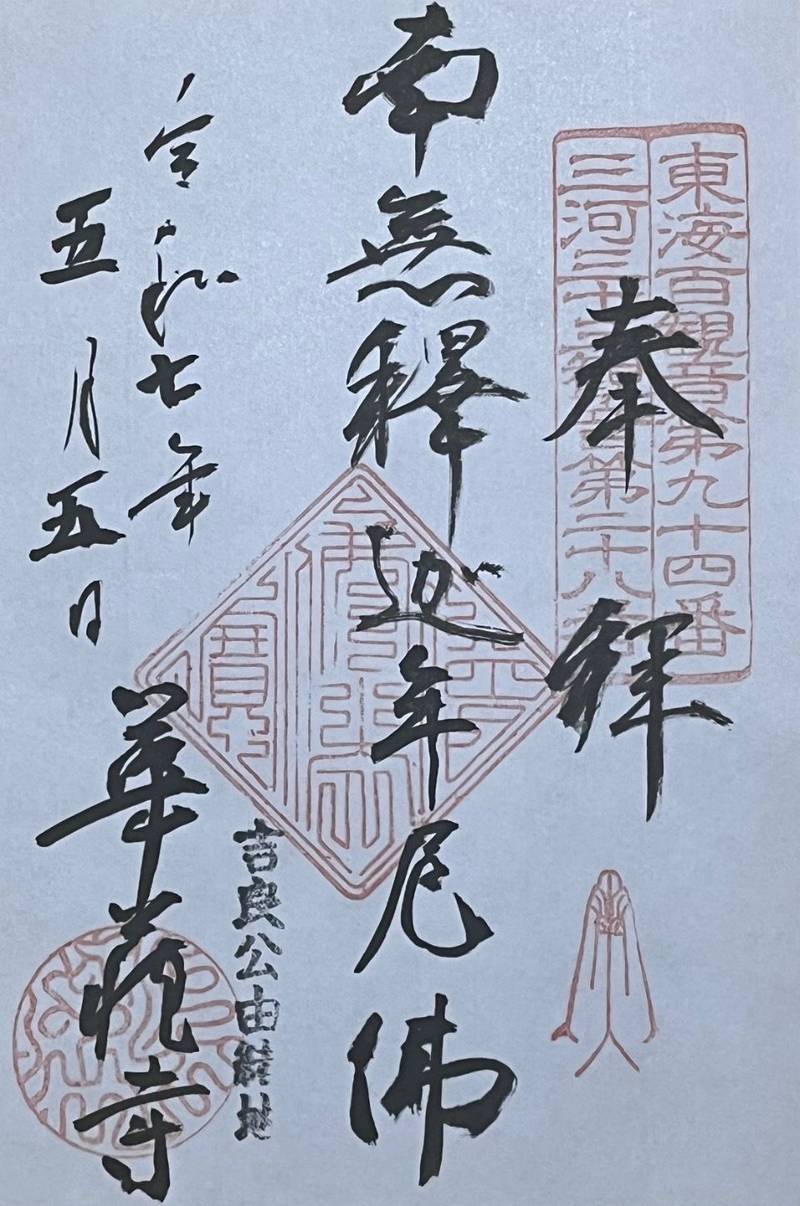 東海百観音第九十四番
三河三十三観音第二十八番
奉拝
南無釋迦牟尼佛
令和七年
五月五日
吉良公由緒地
華蔵寺